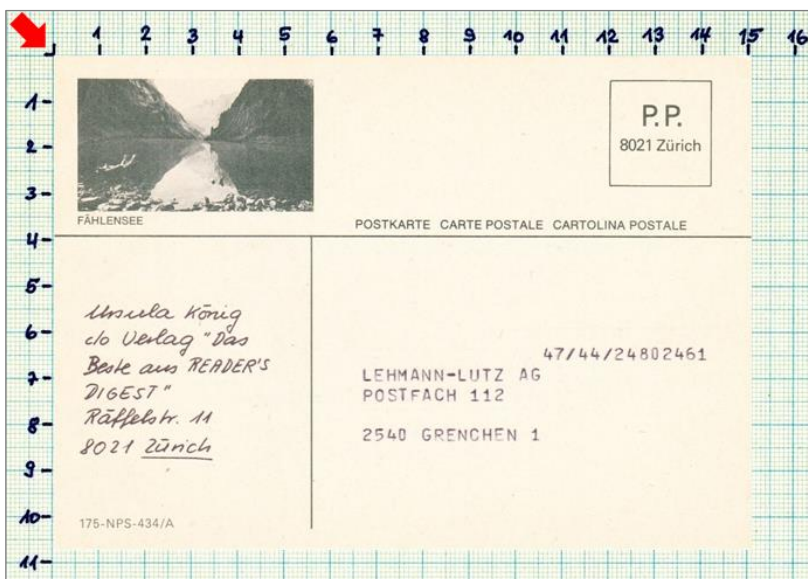 1 2 3 4 5 6 7 8 9 10 11 12 13 14 15 16
1
2
3
4
5
6
7
8
9
10
11
P.P.
8021 Zürich
FÄHLENSEE
POSTKARTE CARTE POSTALE CARTOLINA POSTALE
Ursula König
c/o Verlag "Das
Beste aus READER'S
DIGEST"
Räffelstr. 11
8021 Zürich
47/44/24802461
LEHMANN-LUTZ AG
POSTFACH 112
2540 GRENCHEN 1
175-NPS-434/A